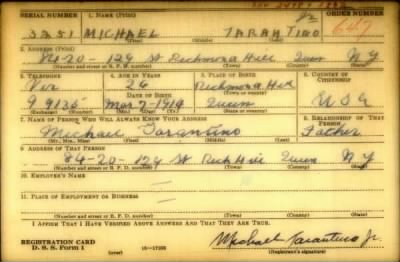 SERIAL NUMBER 1. NAME (Print) ORDER NUMBER
3251 MICHAEL TARANTINO Jr
(First) (Middle) (Last)
2. ADDRESS (Print)
84-20-124 St Richmond Hill Queen N Y
(Number and street or R. F. D. number) (Town) (County) (State)
3. TELEPHONE 4. AGE IN YEARS 5. PLACE OF BIRTH 6. COUNTRY OF CITIZENSHIP
Vir 26 Richmond Hill
DATE OF BIRTH
9 9135 Mar 7-1914 Queen U S A
(Exchange) (Number) (Mo.) (Day) (Yr.) (State or country)
7. NAME OF PERSON WHO WILL ALWAYS KNOW YOUR ADDRESS 8. RELATIONSHIP OF THAT PERSON
Michael Tarantino Father
(Mr., Mrs., Miss) (First) (Middle) (Last)
9. ADDRESS OF THAT PERSON
84-20-124 St Rich Hill Queen N Y
(Number and street or R. F. D. number) (Town) (County) (State)
10. EMPLOYER'S NAME
11. PLACE OF EMPLOYMENT OR BUSINESS
(Number and street or R. F. D. number) (Town) (County) (State)
I AFFIRM THAT I HAVE VERIFIED ABOVE ANSWERS AND THAT THEY ARE TRUE.
REGISTRATION CARD
D. S. S. Form 1 Michael Tarantino Jr.
(Registrant's signature)